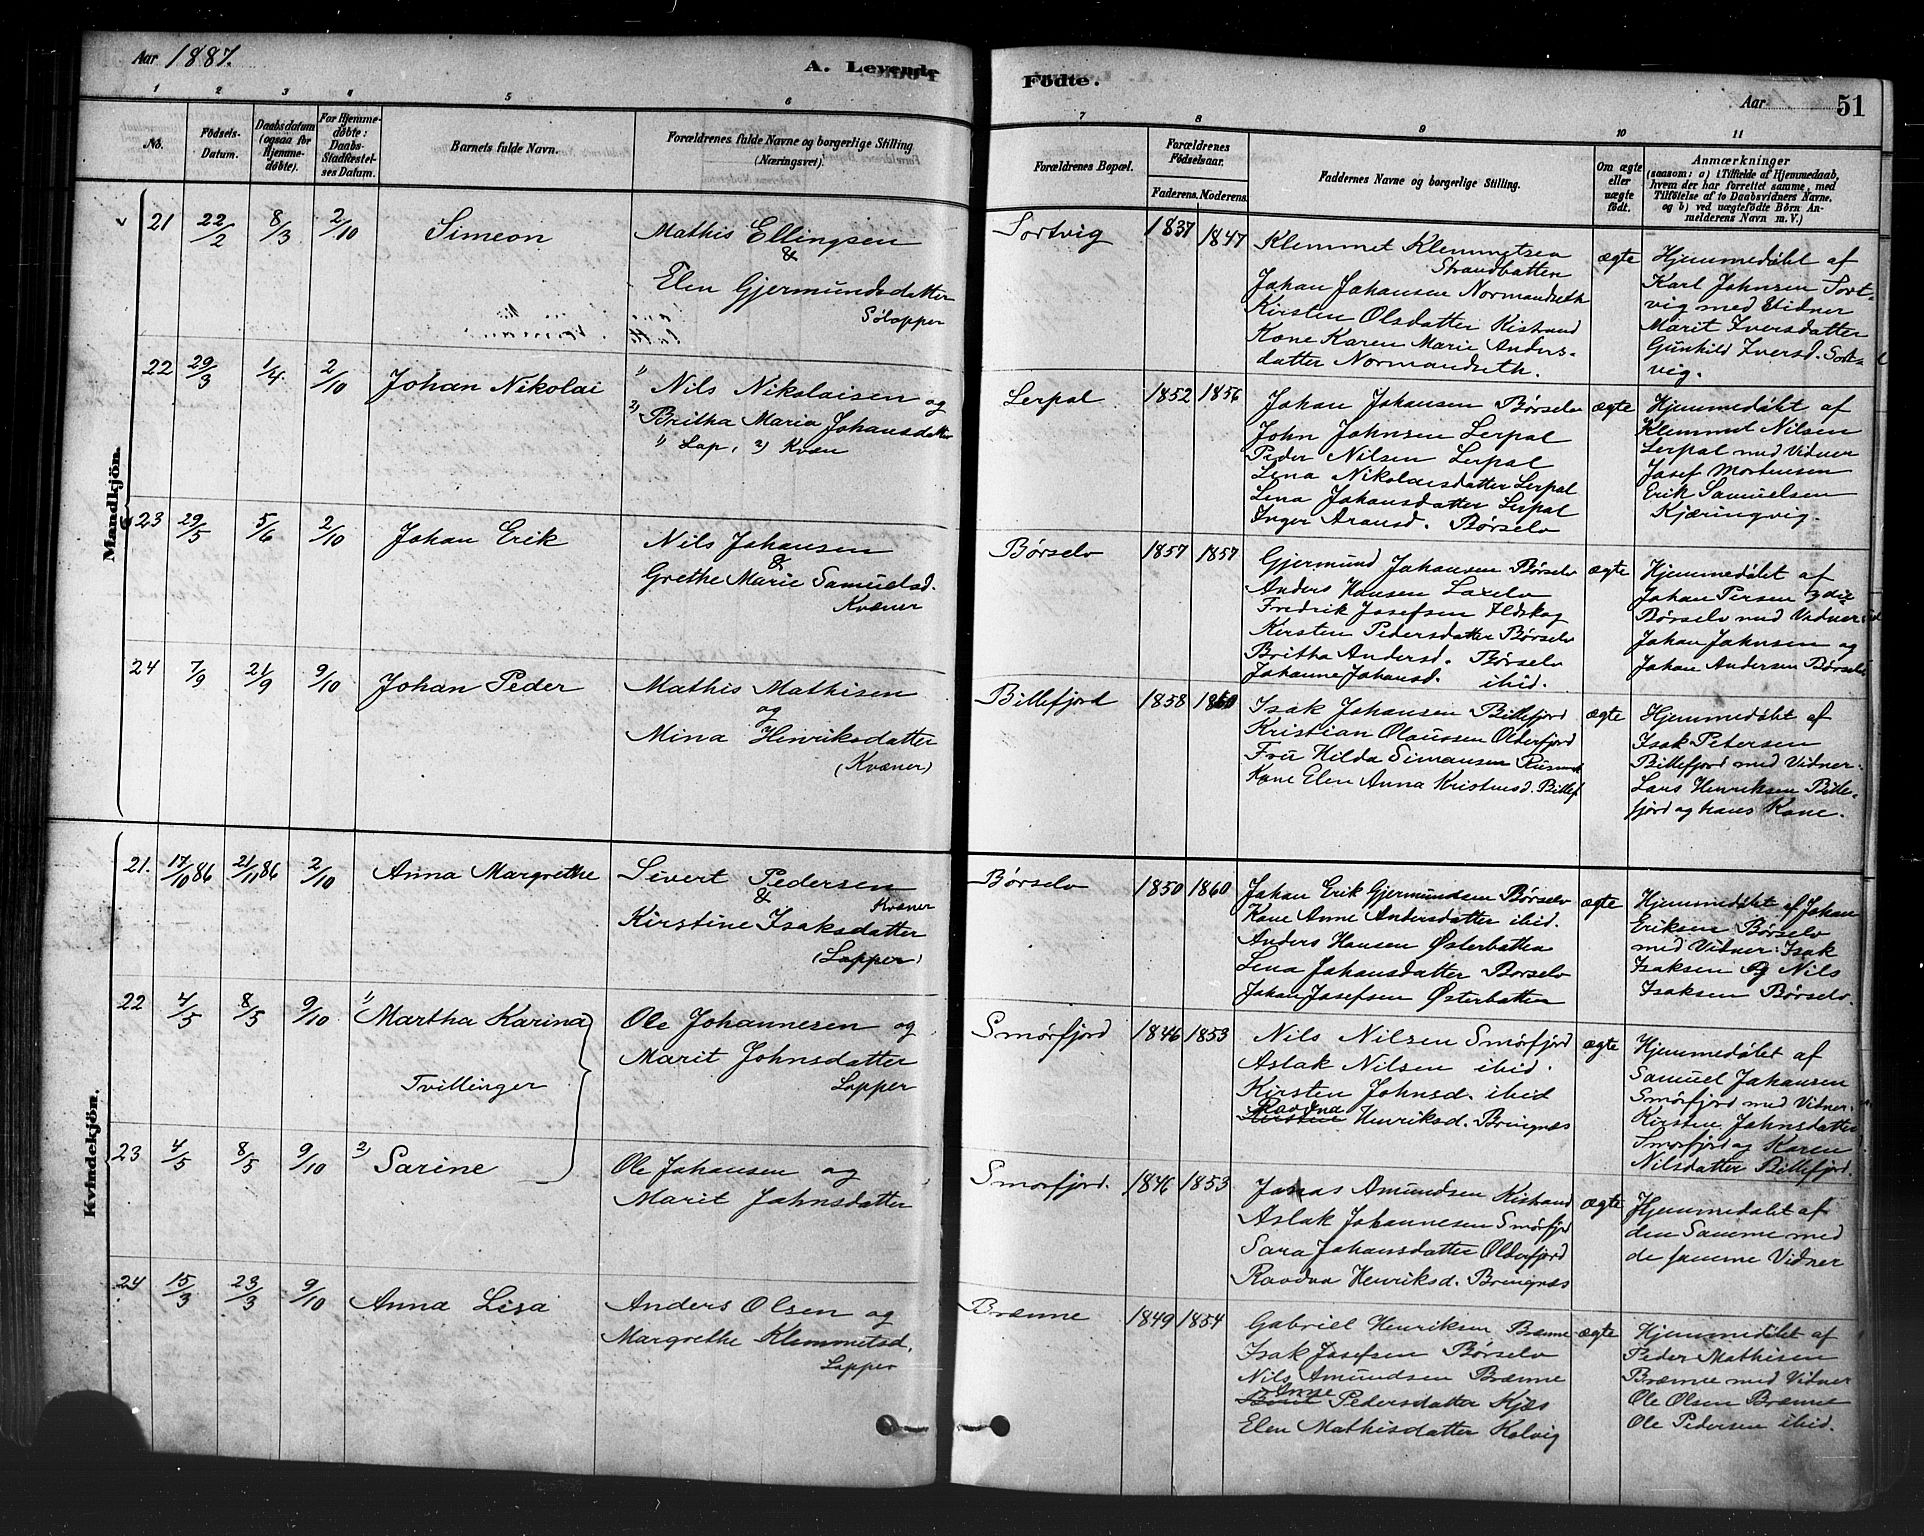 Aar 1887.
A. Levende
1 2 3 4 5 6
No.
Födsels-
Datum.
Daabsdatum
(ogsaa for
Hjemme-
døbte).
For Hjemme-
døbte:
Daabs-
Stadfæstel-
ses Datum.
Barnets fulde Navn.
Forældrenes fulde Navne og borgerlige Stilling
(Næringsvei).
Mandkjön.
21 22/2 8/3 2/10 Simeon
Mathis Ellingsen
&
Elen Gjermundsdatter
Sølapper
22 29/3 1/4. 2/10 Johan Nikolai
1) Nils Nikolaisen og
2) Britha Maria Johansdatter
1) Lap, 2) Kvæn
23 29/5 5/6 2/10 Johan Erik
Nils Johansen
&
Grethe Marie Samuelsd.
Kvæner
24 7/9 21/9 9/10 Johan Peder
Mathis Mathisen
og
Mina Henriksdatter
(Kvæner)
Kvindekjön.
21. 17/10 86 21/11 86 2/10 Anna Margrethe
Sivert Pedersen
& Kvæner
Kirstine Isaksdatter
(Lapper)
22 4/5 8/5 9/10 1) Martha Karina
Tvillinger
Ole Johannesen og
Marit Johnsdatter
Lapper
23 4/5 8/5 9/10 2) Sarine
Ole Johansen og
Marit Johnsdatter
24 15/3 23/3 9/10 Anna Lisa
Anders Olsen og
Margrethe Klemmetsd.
Lapper
Födte.
Aar 51
7 8 9 10 11
Forældrenes Bopæl.
Forældrenes
Fødselsaar.
Faderens. Moderens.
Faddernes Navne og borgerlige Stilling.
Om ægte
eller
uægte
födt.
Anmærkninger
(saasom: a) i Tilfælde af Hjemmedaab,
hvem der har forrettet samme, med
Tilföielse af to Daabsvidners Navne,
og b) ved uægtefödte Börn An-
melderens Navn m. V.)
Sortvig 1837 1847
Klemmet Klemmetsen
Strandbatten
Johan Johansen Normandseth
Kirsten Olsdatter Kistrand
Kone Karen Marie Anders-
datter Normandseth.
ægte
Hjemmedøbt af
Karl Johnsen Sort-
vig med Vidner
Marit Iversdatter
Gunhild Iversd. Sort-
vig.
Lerpal 1852 1856
Johan Johansen Børselv
John Johnsen Lerpal
Peder Nilsen Lerpal
Lena Nikolaisdatter Lerpal
Lena Johansdatter Lerpal
Inger Aransd. Børselv
ægte
Hjemmedøbt af
Klemmet Nilsen
Lerpal med Vidner
Josef Mortensen
Erik Samuelsen
Kjæringvig.
Børselv 1857 1857
Gjermund Johansen Børselv
Anders Hansen Laxelv
Fredrik Josefsen Ildskog
Kirsten Pedersdatter Børselv
Britha Andersd. Børselv
Johanne Johansd. ibid.
ægte
Hjemmedøbt af
Johan Persen
Børselv med Vidner
Johan Johnsen og
Johan Andersen Børselv
Billefjord 1858 1860
Isak Johansen Billefjord
Kristian Olaussen Olderfjord
Fru Hilda Simonsen
Kone Elen Anna Kristensd. Billef
ægte
Hjemmedøbt af
Isak Petersen
Billefjord med Vidner
Lars Henriksen Bille-
fjord og hans Kone.
Børselv 1850 1860
Johan Erik Gjermundsen Børselv
Kone Anne Andersdatter ibid.
Anders Hansen Østerbotten
Lena Johansdatter Børselv
Johan Josefsen Østerbotten
ægte
Hjemmedøbt af Johan
Eriksen Børselv
med Vidner: Isak
Isaksen og Nils
Isaksen Børselv.
Smørfjord 1846 1853
Nils Nilsen Smørfjord
Aslak Nilsen ibid.
Kirsten Johnsd. ibid
Raavdna
Kirsten Henriksd. Bringnæs
ægte
Hjemmedøbt af
Samuel Johansen
Smørfjord med Vidner
Kirsten Johnsdatter
Smørfjord og Karen
Nilsdatter Billefjord.
Smørfjord. 1846 1853
Jonas Amundsen Kistrand
Aslak Johannesen Smørfjord
Sara Johansdatter Olderfjord
Raavdna Henriksd. Bringnæs
ægte
Hjemmedøbt af
den Samme med
de samme Vidner
Brænne 1849 1854
Gabriel Henriksen Brænne
Isak Josefsen Børselv
Nils Amundsen Brænne
Pedersdatter Kjæs
Elen Mathisdatter Kolvig
ægte
Hjemmedøbt af
Peder Mathisen
Brænne med Vidner
Ole Olsen Brænne
Ole Pedersen ibid.